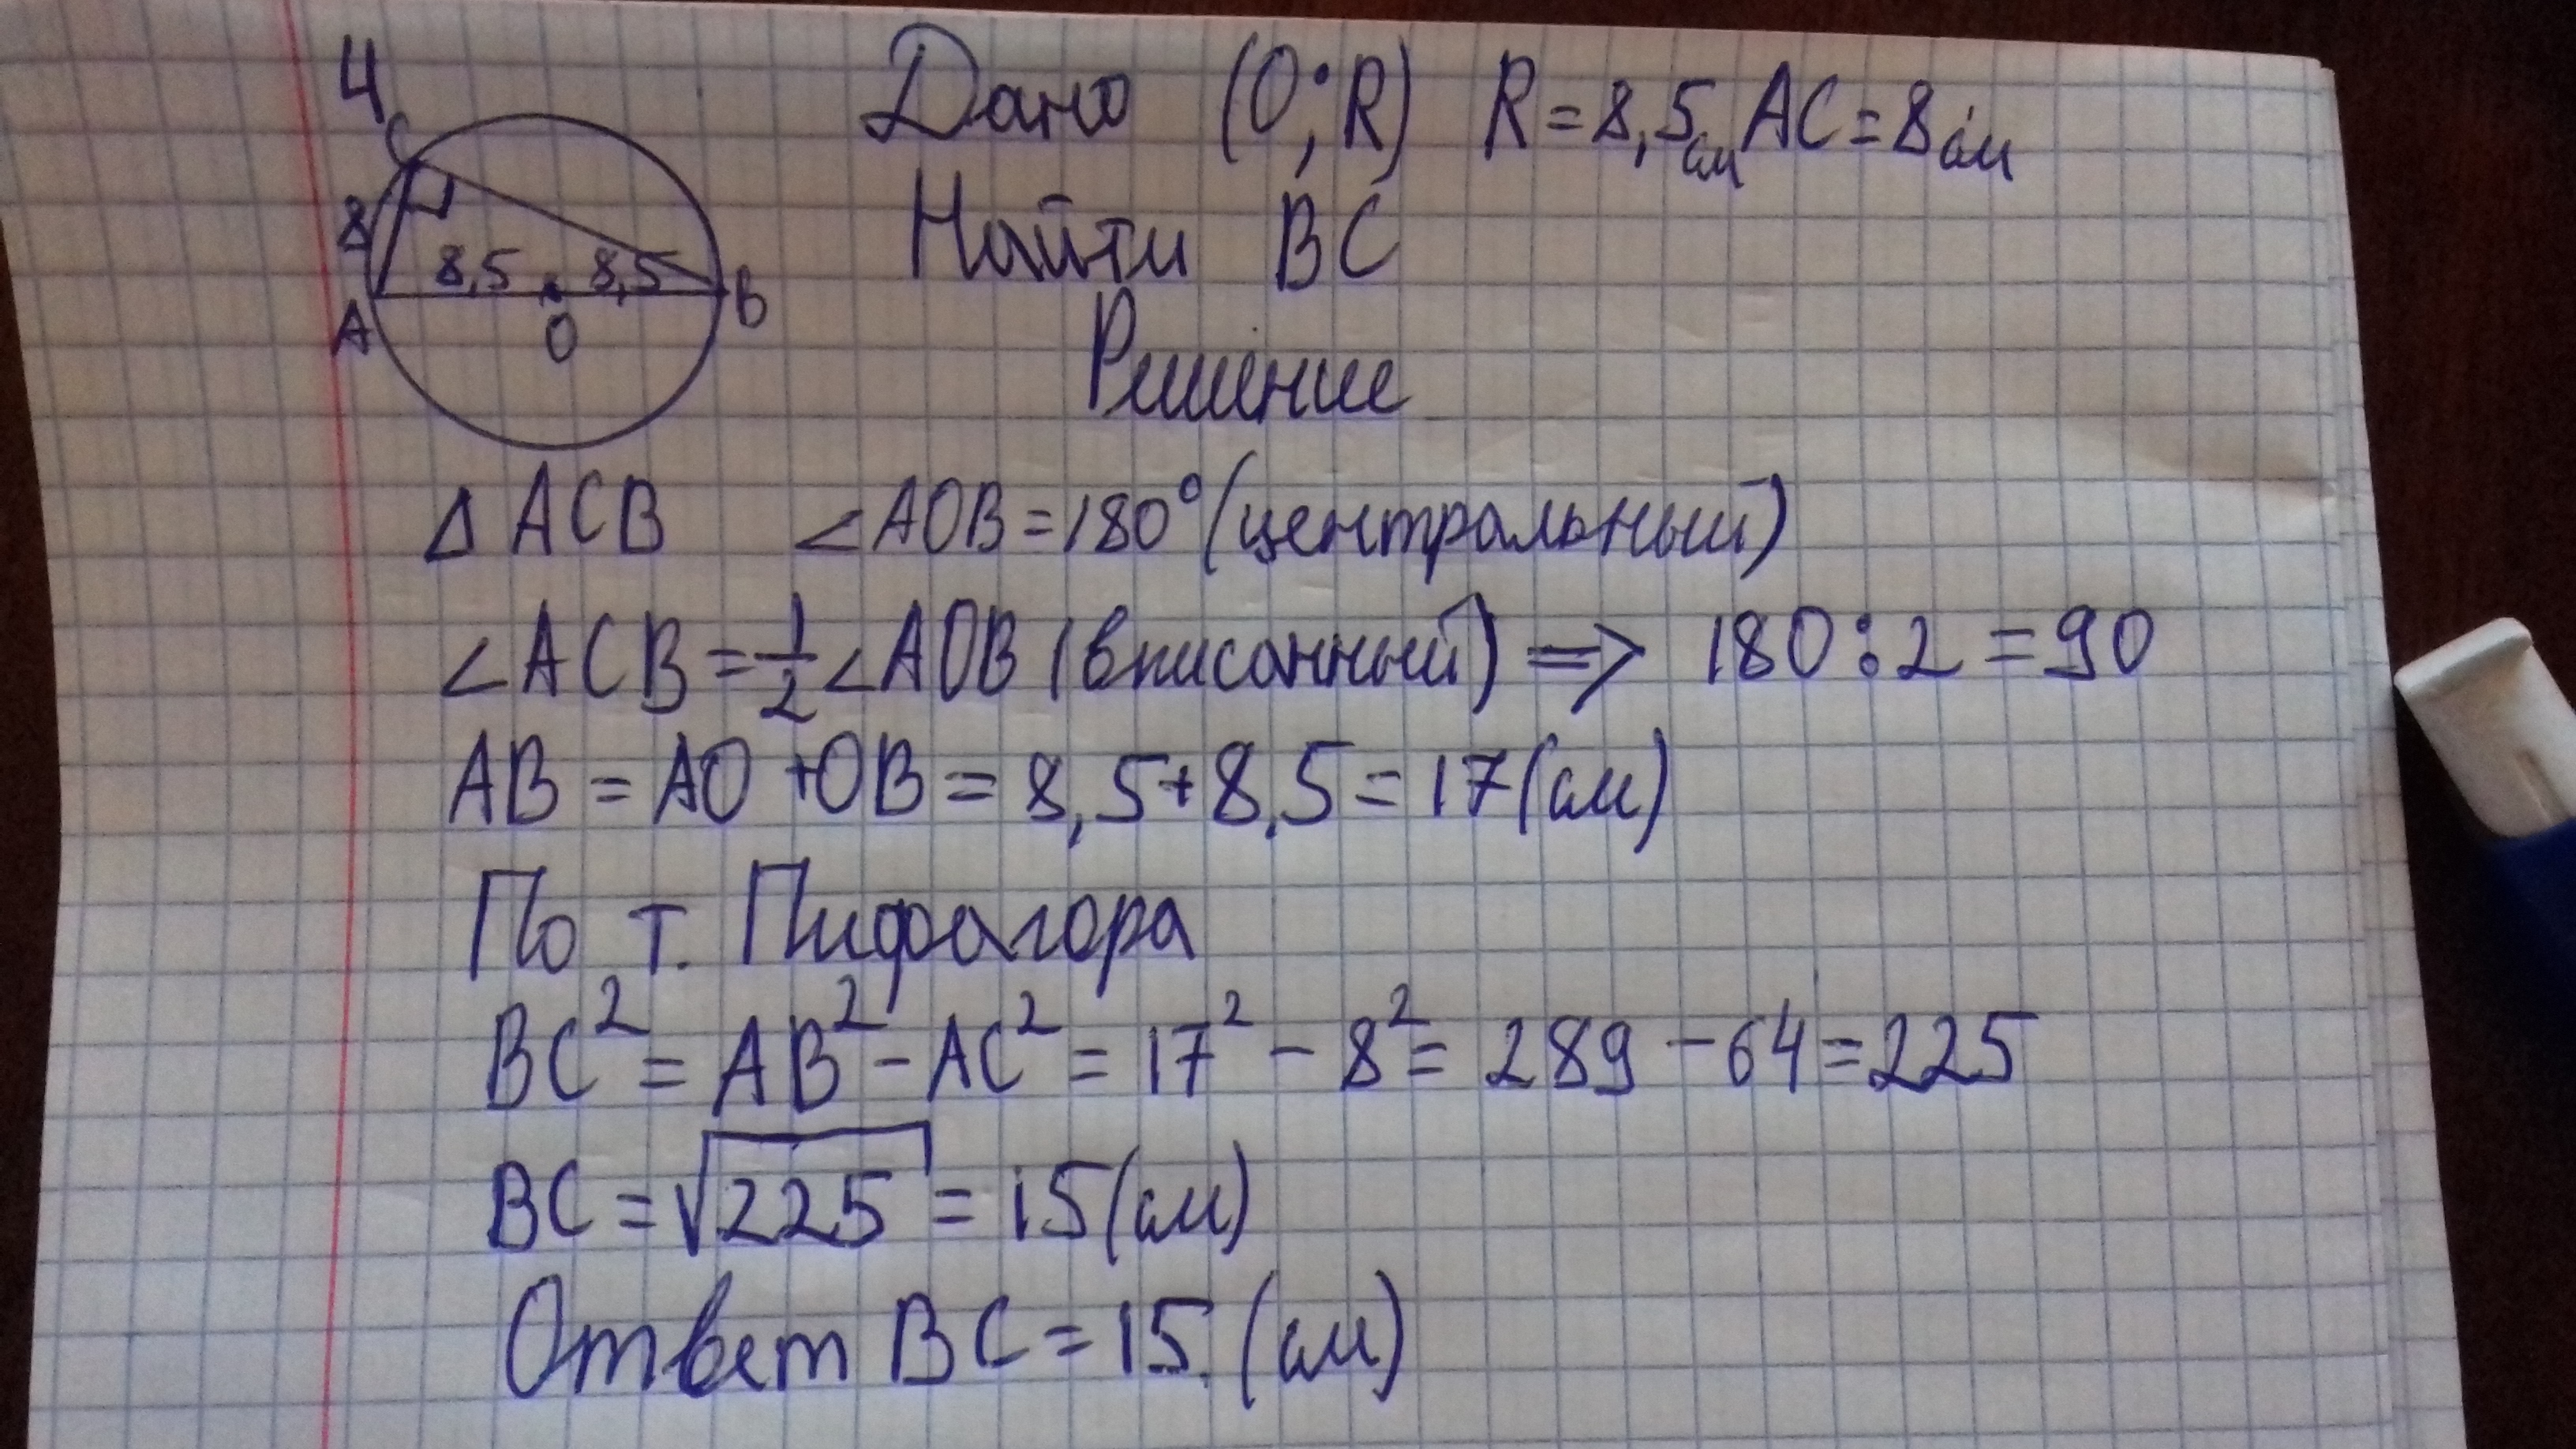 4
Дано (O;R) R=8,5см AC=8см
C
8
8,5 8,5
A O B
Найти BC
Решение
Δ ACB ∠AOB=180°(центральный)
∠ACB=1/2∠AOB (вписанный) => 180:2=90
AB=AO+OB=8,5+8,5=17(см)
По т. Пифагора
BC²=AB²-AC²=17²-8²=289-64=225
BC=√225=15(см)
Ответ BC=15.(см)